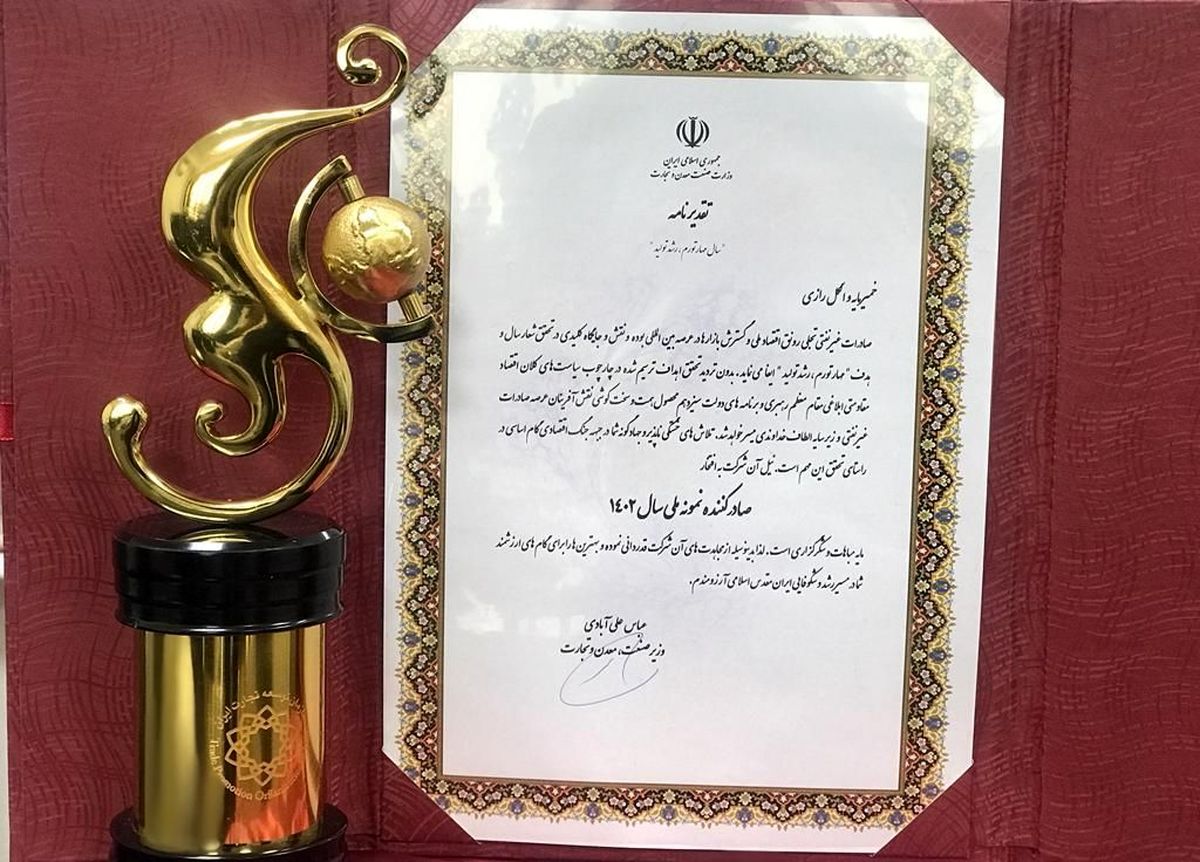 جمهوری اسلامی ایران
وزارت صنعت معدن و تجارت
تقدیرنامه
"سال مهار تورم، رشد تولید"
خمیرمایه و الکل رازی
صادرات غیرنفتی تجلی رونق اقتصاد ملی و گسترش بازارها در عرصه بین المللی بوده و نقش و جایگاه کلیدی در تحقق شعار سال و
هدف "مهار تورم، رشد تولید" ایفا می نماید. بدون تردید تحقق اهداف ترسیم شده در چارچوب سیاست های کلان اقتصاد
مقاومتی ابلاغی مقام معظم رهبری و برنامه های دولت سیزدهم محصول همت و سخت کوشی نقش آفرینان عرصه صادرات
غیرنفتی و زیر سایه الطاف خداوندی میسر خواهد شد. تلاش های خستگی ناپذیر و جهادگونه شما در جبهه جنگ اقتصادی گام اساسی در
راستای تحقق این مهم است. نیل آن شرکت به افتخار
صادرکننده نمونه ملی سال ۱۴۰۲
مایه مباهات و شکرگزاری است. لذا بدینوسیله از مجاهدت های آن شرکت قدردانی نموده و بهترین ها را برای گام های ارزشمند
شما در مسیر رشد و شکوفایی ایران مقدس اسلامی آرزومندم.
عباس علی آبادی
وزیر صنعت، معدن و تجارت
سازمان توسعه تجارت ایران
Trade Promotion